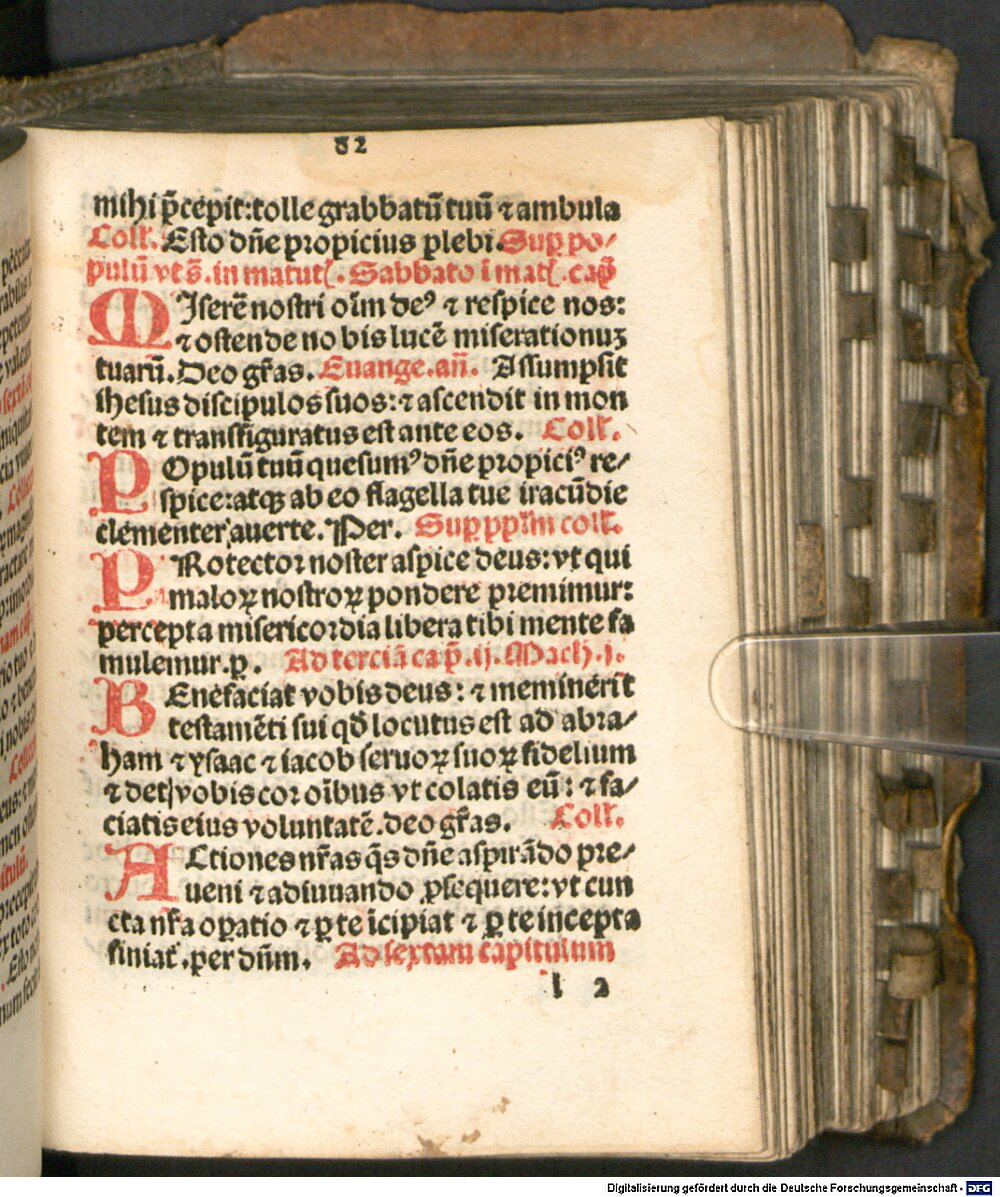 82
mihi p̄cepit: tolle grabbatū tuū ⁊ ambula
Coll̄. Esto dn̄e propicius plebi. Sup po⸗
pulū vt s̄. in matut̄. Sabbato ī mat̄. cap̄
MIserē nostri oīm deꝰ ⁊ respice nos:
⁊ ostende no bis lucē miserationuꝫ
tuarū. Deo gr̄as. Euange. an̄. Assumpsit
ihesus discipulos suos: ⁊ ascendit in mon
tem ⁊ transfiguratus est ante eos. Coll̄.
POpulū tuū quesumꝰ dn̄e propiciꝰ re⸗
spice: atqꝫ ab eo flagella tue iracūdie
clementer auerte. Per. Sup pp̄l̄m coll̄.
PRotector noster aspice deus: vt qui
maloꝝ nostroꝝ pondere premimur:
percepta misericordia libera tibi mente fa
mulemur. p̄. Ad terciā cap̄. ij. Mach. j.
BEnefaciat vobis deus: ⁊ meminerit
testamēti sui qd̄ locutus est ad abra⸗
ham ⁊ ysaac ⁊ iacob seruoꝝ suoꝝ fidelium
⁊ det vobis cor oībus vt colatis eū: ⁊ fa⸗
ciatis eius voluntatē. deo gr̄as. Coll̄.
ACtiones nr̄as q̄s dn̄e aspirādo pre⸗
ueni ⁊ adiuuando ꝓsequere: vt cun
cta nr̄a oꝑatio ⁊ ꝑ te īcipiat ⁊ ꝑ te incepta
finiat̄. per dn̄m. Ad sextam capitulum
l 2
Digitalisierung gefördert durch die Deutsche Forschungsgemeinschaft - DFG